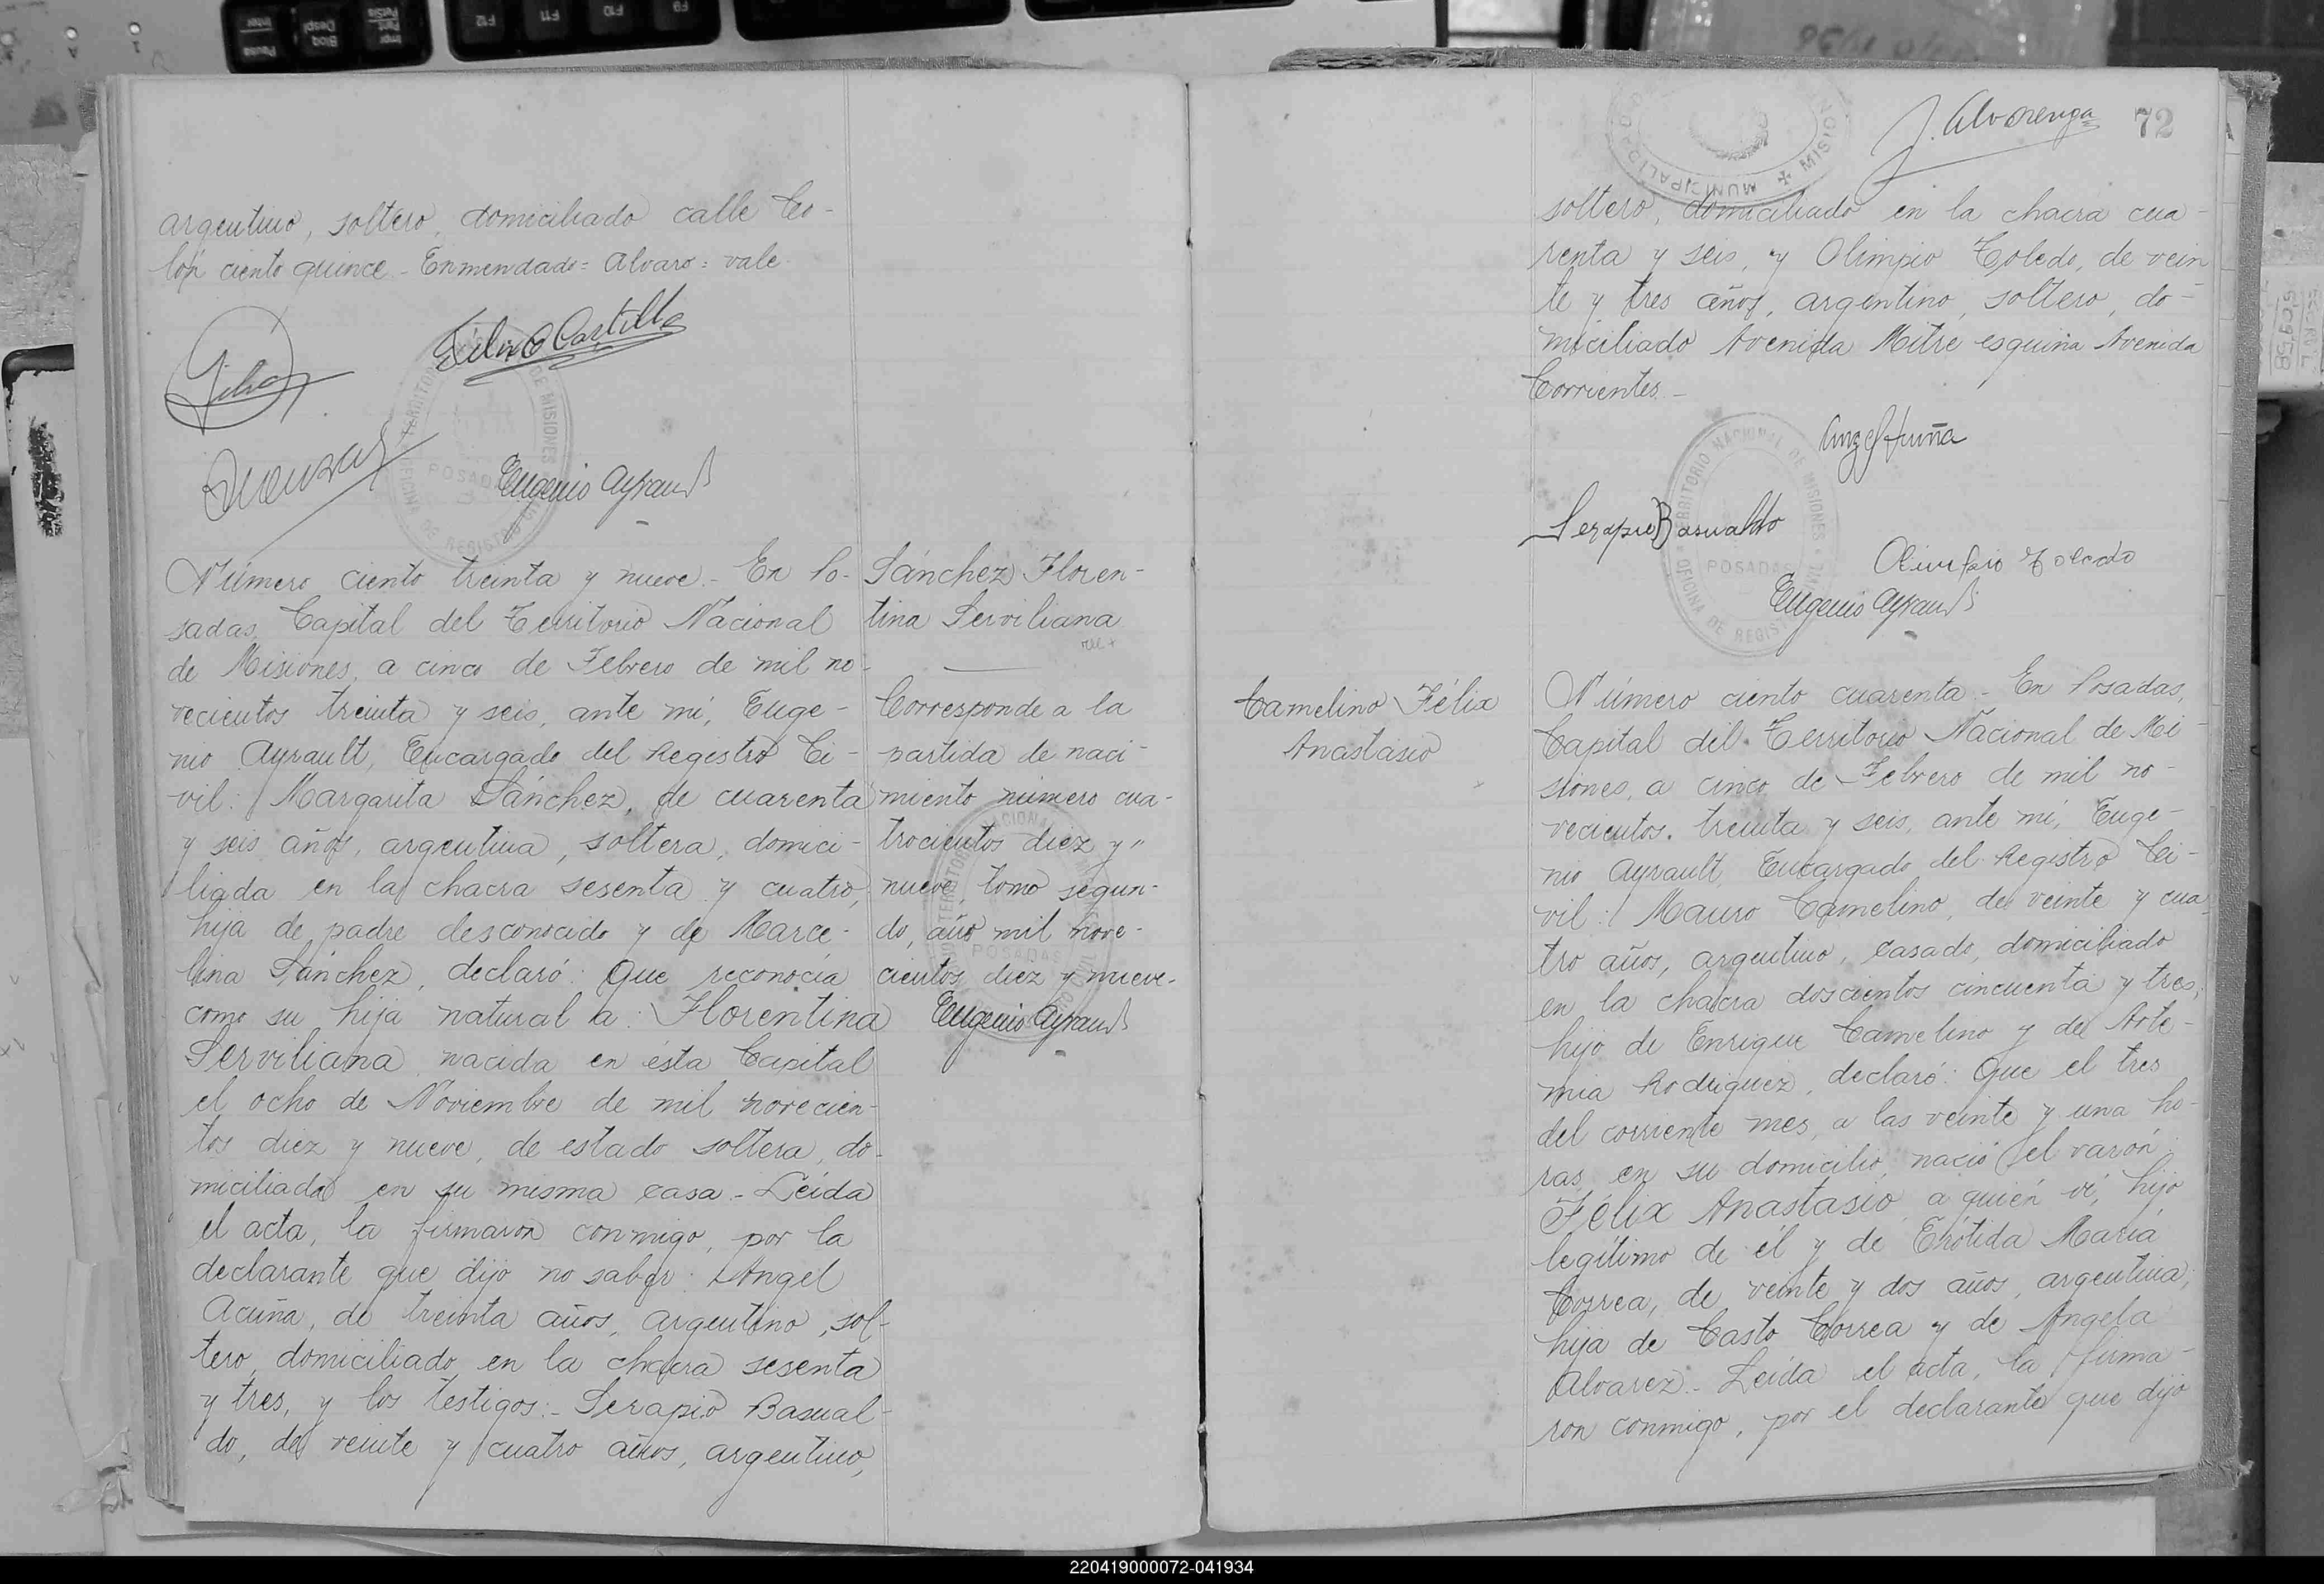 argentino, soltero, domiciliado calle Co-
lón ciento quince.- Enmendado= Alvaro= vale-
Eugenio Ayrault
Número ciento treinta y nueve.- En Po-
sadas, Capital del Territorio Nacional
de Misiones, a cinco de Febrero de mil no-
vecientos treinta y seis, ante mí, Euge-
nio Ayrault, Encargado del Registro Ci-
vil: Margarita Sánchez, de cuarenta
y seis años, argentina, soltera, domici-
liada en la chacra sesenta y cuatro,
hija de padre desconocido y de Marce-
lina Sánchez, declaró: Que reconocía
como su hija natural a: Florentina
Serviliana, nacida en ésta Capital
el ocho de Noviembre de mil novecien-
tos diez y nueve, de estado soltera, do-
miciliada en su misma casa.- Leída
el acta, la firmaron conmigo, por la
declarante que dijo no saber: Angel
Acuña, de treinta años, argentino, sol-
tero, domiciliado en la chacra sesenta
y tres, y los testigos:- Serapio Basual-
do, de veinte y cuatro años, argentino,
Sánchez Floren-
tina Serviliana
Corresponde a la
partida de naci-
miento número cua-
trocientos diez y "
nueve, tomo segun-
do, año mil nove-
cientos diez y nueve.
Eugenio Ayrault
J. Alvarenga
72
MUNICIPALI
soltero, domiciliado en la chacra cua-
renta y seis, y Olimpio Toledo, de vein
te y tres años, argentino, soltero, do-
miciliado Avenida Mitre esquina Avenida
Corrientes.-
Angel Acuña
Serapio Basualdo
Olimpio Toledo
Eugenio Ayrault
TERRITORIO NACIONAL DE MISIONES
POSADAS
OFICINA DE REGISTRO CIVIL
Camelino Félix
Anastasio
Número ciento cuarenta.- En Posadas,
Capital del Territorio Nacional de Mi-
siones, a cinco de Febrero de mil no-
vecientos treinta y seis, ante mí, Euge-
nio Ayrault, Encargado del Registro Ci-
vil: Mauro Camelino, de veinte y cua-
tro años, argentino, casado, domiciliado
en la chacra doscientos cincuenta y tres,
hijo de Enrique Camelino y de Arte-
mia Rodriguez, declaró: Que el tres
del corriente mes, a las veinte y una ho-
ras, en su domicilio, nació el varón
Félix Anastasio, a quién ví, hijo
legítimo de él y de Erótida María
Correa, de veinte y dos años, argentina,
hija de Casto Correa y de Angela
Alvarez.- Leída el acta, la firma-
ron conmigo, por el declarante que dijo
220419000072-041934